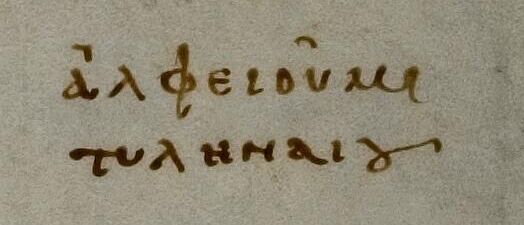 ἀλφειοῦ μι
τυληναιȣ